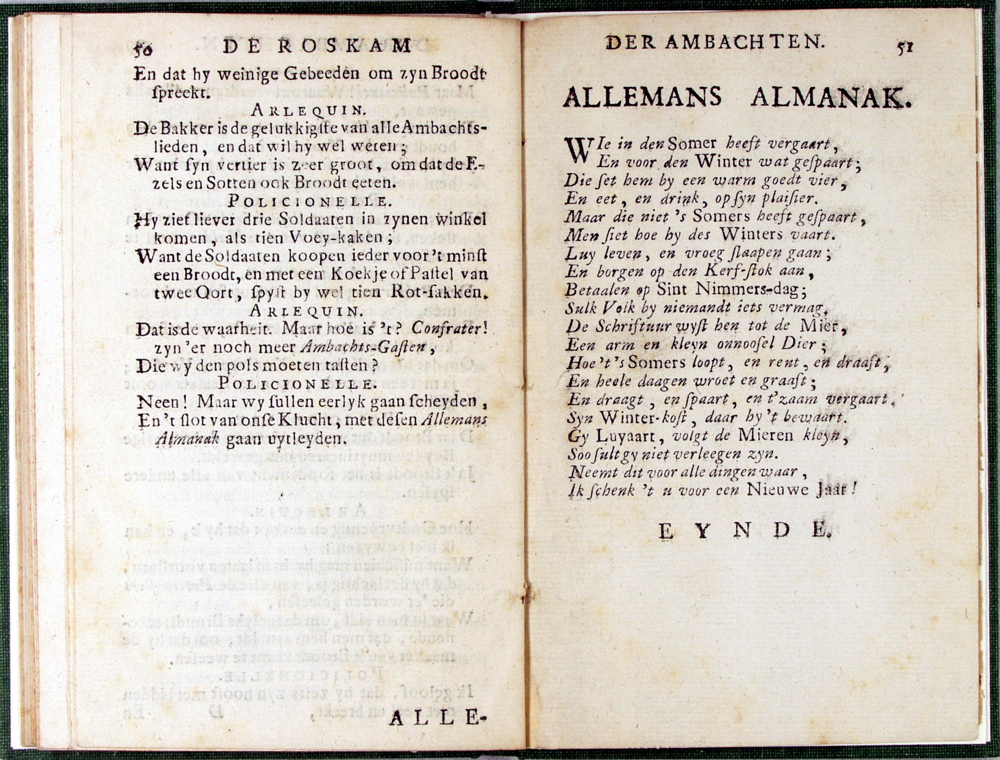 50 DE ROSKAM
En dat hy weinige Gebeeden om zyn Broodt
spreekt.
ARLEQUIN.
De Bakker is de gelukkigste van alle Ambachts-
lieden, en dat wil hy wel weten;
Want syn vertier is zeer groot, om dat de E-
zels en Sotten ook Broodt eeten.
POLICIONELLE.
Hy ziet liever drie Soldaaten in zynen winkel
komen, als tien Voey-kaken;
Want de Soldaaten koopen ieder voor 't minst
een Broodt, en met een Koekje of Pastel van
twee Oort, spyst hy wel tien Rot-sakken.
ARLEQUIN.
Dat is de waarheit. Maar hoe is 't? Confrater!
zyn 'er noch meer Ambachts-Gasten,
Die wy den pols moeten tasten?
POLICIONELLE.
Neen! Maar wy sullen eerlyk gaan scheyden,
En 't slot van onse Klucht, met desen Allemans
Almanak gaan uytleyden.
ALLE-
DER AMBACHTEN. 51
ALLEMANS ALMANAK.
WIe in den Somer heeft vergaart,
En voor den Winter wat gespaart;
Die set hem by een warm goedt vier,
En eet, en drink, op syn plaisier.
Maar die niet 's Somers heeft gespaart,
Men siet hoe hy des Winters vaart.
Luy leven, en vroeg slaapen gaan;
En borgen op den Kerf-stok aan,
Betaalen op Sint Nimmers-dag;
Sulk Volk by niemandt iets vermag.
De Schriftuur wyst hen tot de Mier,
Een arm en kleyn onnoosel Dier;
Hoe 't 's Somers loopt, en rent, en draaft,
En heele daagen wroet en graaft;
En draagt, en spaart, en t'zaam vergaart,
Syn Winter-kost, daar hy 't bewaart.
Gy Luyaart, volgt de Mieren kleyn,
Soo sult gy niet verleegen zyn.
Neemt dit voor alle dingen waar,
Ik schenk 't u voor een Nieuwe Jaar!
EYNDE.